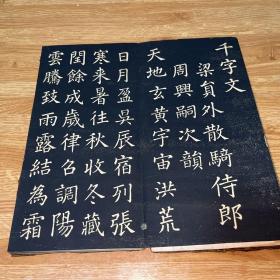 千字文
梁貟外散騎侍郎
周興嗣次韻
天地玄黃宇宙洪荒
日月盈昃辰宿列張
寒来暑往秋收冬藏
閏餘成歲律召調陽
雲騰致雨露結為霜